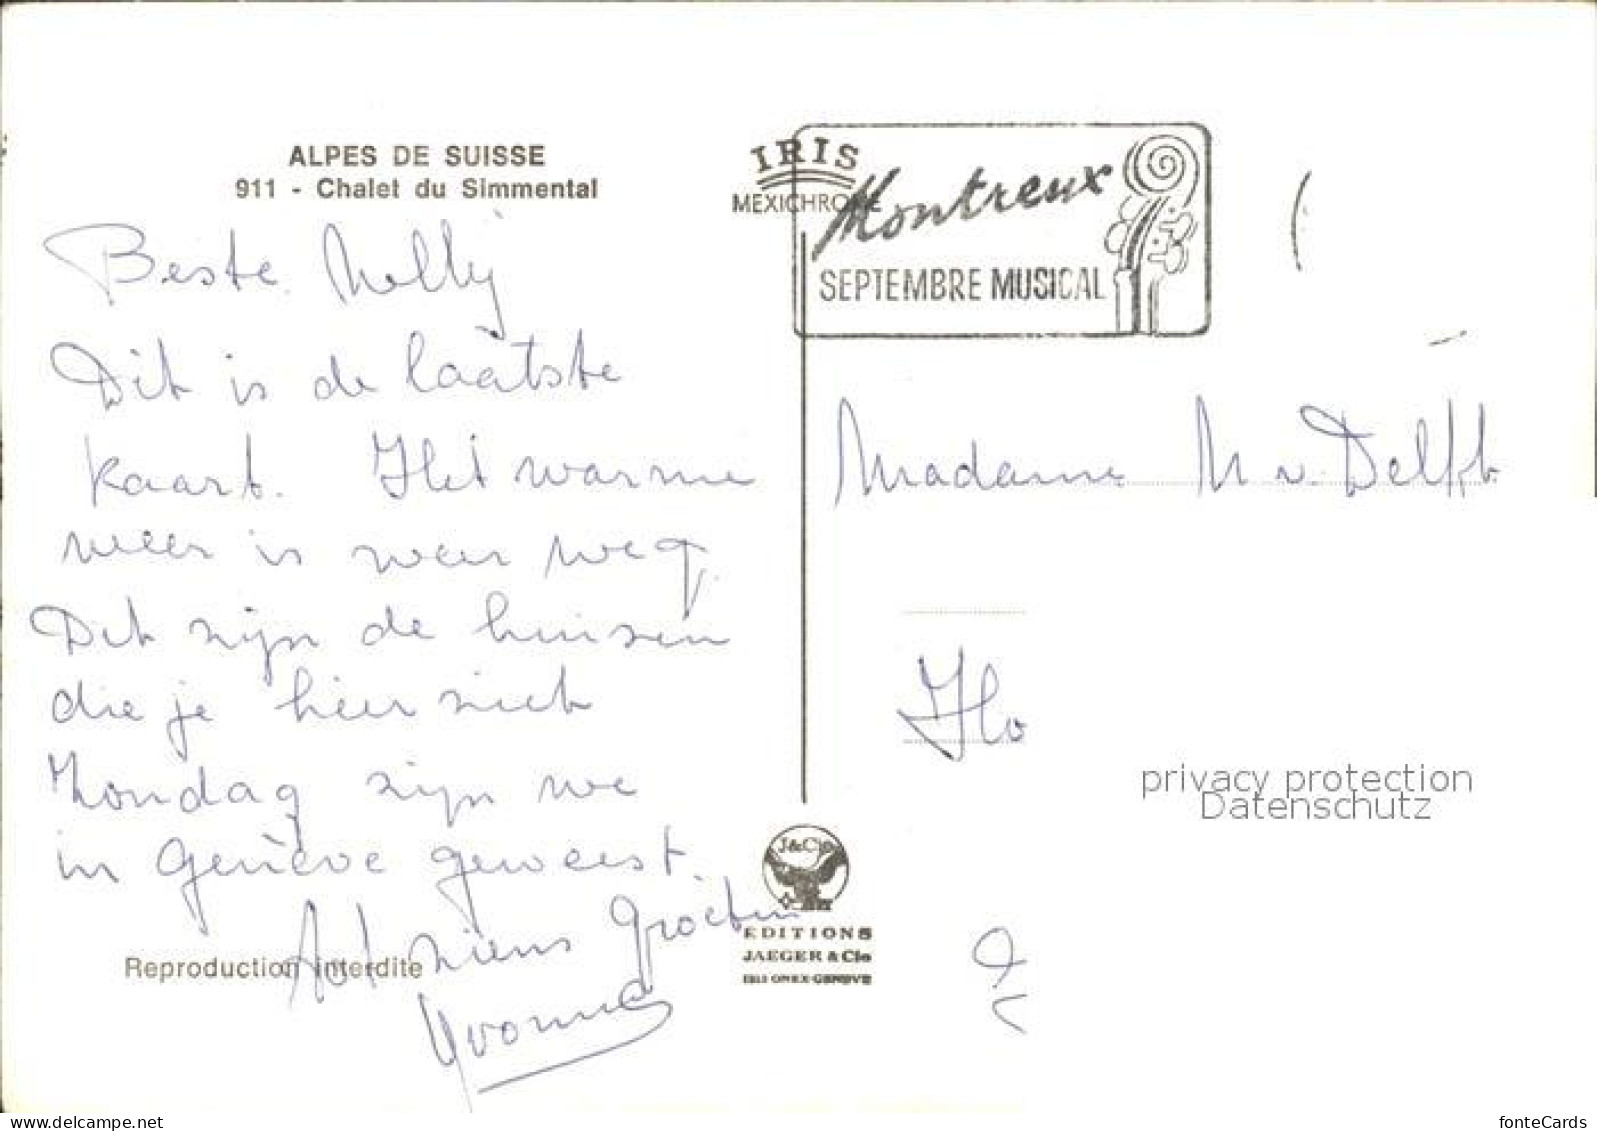 ALPES DE SUISSE
911 - Chalet du Simmental
Beste Nelly
Dit is de laatste
kaart. Het warme
weer is weer weg.
Dit zijn de huizen
die je hier ziet
Zondag zijn we
in Genève geweest.
Tot ziens Groeten
Yvonne
Reproduction interdite
IRIS
MEXICHROME
Montreux
SEPTEMBRE MUSICAL
Madame N v. Delft
privacy protection
Datenschutz
J&Cie
EDITIONS
JAEGER & Cie
1213 ONEX-GENEVE
www.delcampe.net
fonteCards